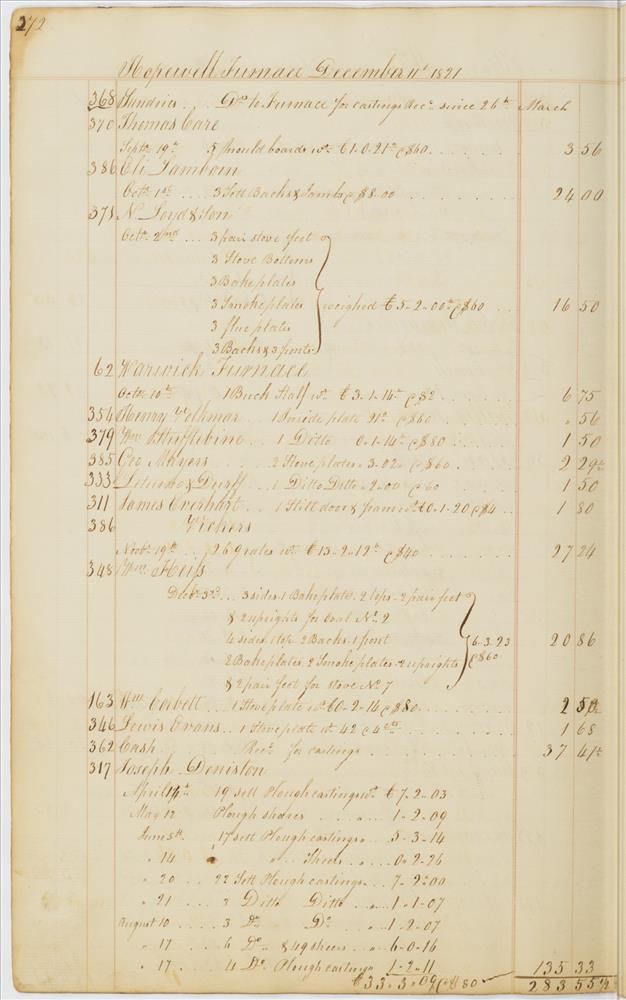 272
Hopewell Furnace December 11th 1821
368 Sundries . . Drs to Furnace for castings Recd since 26th March
370 Thomas Care
Septr 19th 5 Mould boards wt C 1-0-21 @ $60 3 56
386 Eli Lamborn
Octr 1st 3 Sett Backs & Jambs @ $8.00 24 00
371 N. Loyd & Son
Octr 2nd 3 pair stove feet
3 Stove Bottoms
3 Bakeplates
3 Smokeplates weighed C 5-2-00 @ $60 16 50
3 flue plates
3 Backs & 3 fronts
62 Warwick Furnace
Octr 10th 1 Buck Staff wt C 3-1-14 @ $2 6 75
354 Henry 1 Inside plate 21 @ $60 56
379 Wm 1 Ditto 0-1-14 @ $80 1 50
385 Geo Mayers 2 Stoveplates 3-02 @ $60 2 29
333 & 1 Ditto Ditto 2-00 @ 60 1 50
311 James Everhart 1 Still door & frame wt C 0-1-20 @ $4 1 80
386 Vickers
Novr 19th 26 grates wt C 13-2-12 @ $40 27 24
348 Wm
Decr 3rd 3 sides 1 Bakeplate 2 tops 2 pair feet
& 2 uprights for Coal No 2
4 sides 1 top 2 Backs 1 front 6-3-23 20 86
2 Bakeplates 2 Smokeplates 2 uprights @ $60
& 2 pair feet for stove No 7
163 Wm Corbett 1 Stoveplate wt C 0-2-16 @ $80 2 50
346 Lewis Evans 1 Stoveplate wt 42 @ 4cts 1 68
362 Cash Recd for castings 37 41
317 Joseph Deniston
April 14th 19 sett Plough castings wt C 7-2-03
May 12 Plough shares " 1-2-09
June 5th 17 sett Plough castings " 5-3-14
" 14 " Sheers " 0-2-26
" 20 22 Sett Plough castings 7-2-00
" 21 3 Ditto Ditto " 1-1-07
August 10 3 Do Do " 1-2-07
" 17 6 Do & 49 sheers " 6-0-16
" 17 4 Do Plough castings 1-2-11 135 33
C 33-3-09 @ $4 80 283 55½